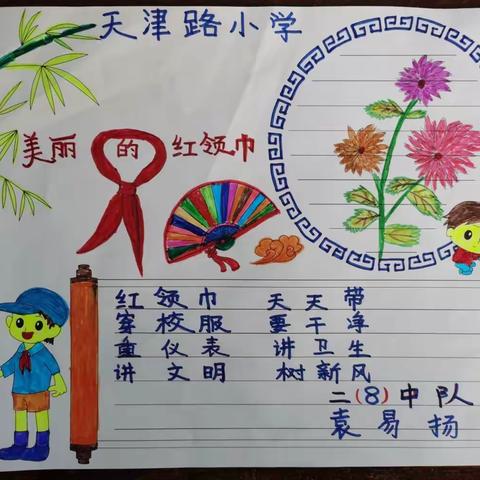 天津路小学
美丽的红领巾
红领巾 天天带
穿校服 要干净
重仪表 讲卫生
讲文明 树新风
二(8)中队
袁易扬